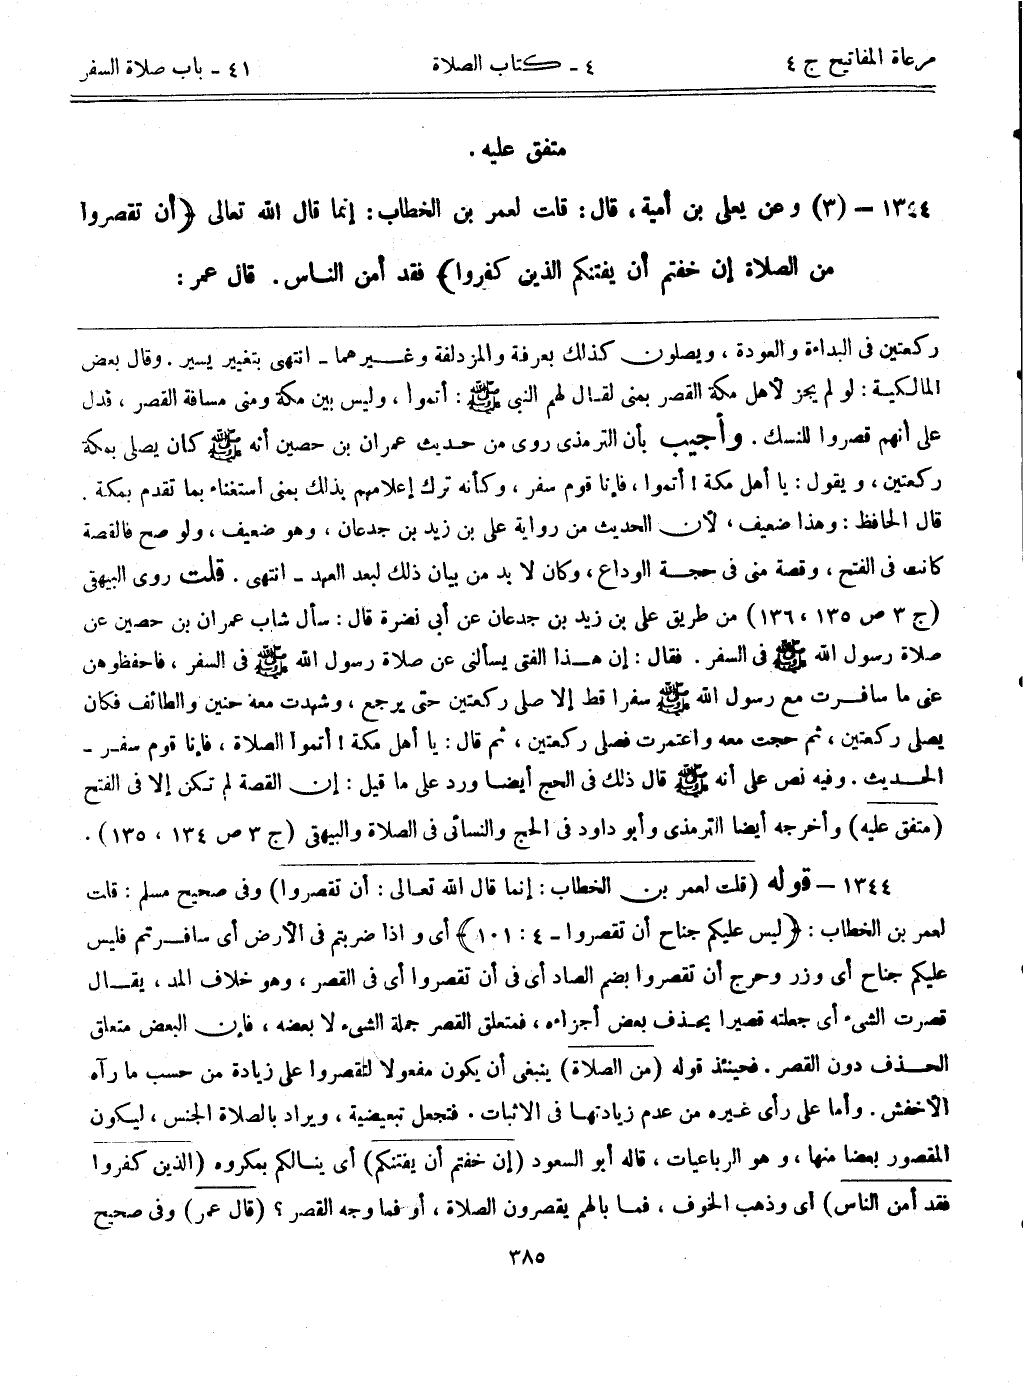 مرعاة المفاتيح ج ٤
٤ ـ كتاب الصلاة
٤١ ـ باب صلاة السفر
متفق عليه .
١٣٤٤ – (٣) وعن يعلى بن أمية، قال: قلت لعمر بن الخطاب: إنما قال الله تعالى ﴿أن تقصروا
من الصلاة إن خفتم أن يفتنكم الذين كفروا﴾ فقد أمن الناس. قال عمر:
ركعتين فى البداءة والعودة ، ويصلون كذلك بعرفة والمزدلفة وغيرهما ـ انتهى بتغيير يسير . وقال بعض
المالكية : لو لم يجز لأهل مكة القصر بمنى لقال لهم النبى ﷺ : أتموا ، وليس بين مكة ومنى مسافة القصر ، فدل
على أنهم قصروا للنسك . وأجيب بأن الترمذى روى من حديث عمران بن حصين أنه ﷺ كان يصلى بمكة
ركعتين ، ويقول : يا أهل مكة ! أتموا ، فإنا قوم سفر ، وكأنه ترك إعلامهم بذلك بمنى استغناء بما تقدم بمكة .
قال الحافظ : وهذا ضعيف ، لأن الحديث من رواية على بن زيد بن جدعان ، وهو ضعيف ، ولو صح فالقصة
كانت فى الفتح ، وقصة منى فى حجة الوداع ، وكان لا بد من بيان ذلك لبعد العهد ـ انتهى . قلت روى البيهقى
(ج ٣ ص ١٣٥ ، ١٣٦) من طريق على بن زيد بن جدعان عن أبى نضرة قال : سأل شاب عمران بن حصين عن
صلاة رسول الله ﷺ فى السفر . فقال : إن هذا الفتى يسألنى عن صلاة رسول الله ﷺ فى السفر ، فاحفظوهن
عنى ما سافرت مع رسول الله ﷺ سفرا قط إلا صلى ركعتين حتى يرجع ، وشهدت معه حنين والطائف فكان
يصلى ركعتين ، ثم حجت معه واعتمرت فصلى ركعتين ، ثم قال : يا أهل مكة ! أتموا الصلاة ، فإنا قوم سفر ـ
الحديث . وفيه نص على أنه ﷺ قال ذلك فى الحج أيضا ورد على ما قيل : إن القصة لم تكن إلا فى الفتح
(متفق عليه) وأخرجه أيضا الترمذى وأبو داود فى الحج والنسائى فى الصلاة والبيهقى (ج ٣ ص ١٣٤ ، ١٣٥) .
١٣٤٤ – قوله (قلت لعمر بن الخطاب : إنما قال الله تعالى : أن تقصروا) وفى صحيح مسلم : قلت
لعمر بن الخطاب : ﴿ليس عليكم جناح أن تقصروا ـ ٤ : ١٠١﴾ أى و اذا ضربتم فى الأرض أى سافرتم فليس
عليكم جناح أى وزر وحرج أن تقصروا بضم الصاد أى فى أن تقصروا أى فى القصر ، وهو خلاف المد ، يقال
قصرت الشىء أى جعلته قصيرا بحذف بعض أجزاءه ، فمتعلق القصر جملة الشىء لا بعضه ، فإن البعض متعلق
الحذف دون القصر . فحينئذ قوله (من الصلاة) ينبغى أن يكون مفعولا لتقصروا على زيادة من حسب ما رآه
الأخفش . وأما على رأى غيره من عدم زيادتها فى الاثبات . فتجعل تبعيضية ، ويراد بالصلاة الجنس ، ليكون
المقصور بعضا منها ، و هو الرباعيات ، قاله أبو السعود (إن خفتم أن يفتنكم) أى ينالكم بمكروه (الذين كفروا
فقد أمن الناس) أى وذهب الخوف ، فما بالهم يقصرون الصلاة ، أو فما وجه القصر ؟ (قال عمر) وفى صحيح
٣٨٥